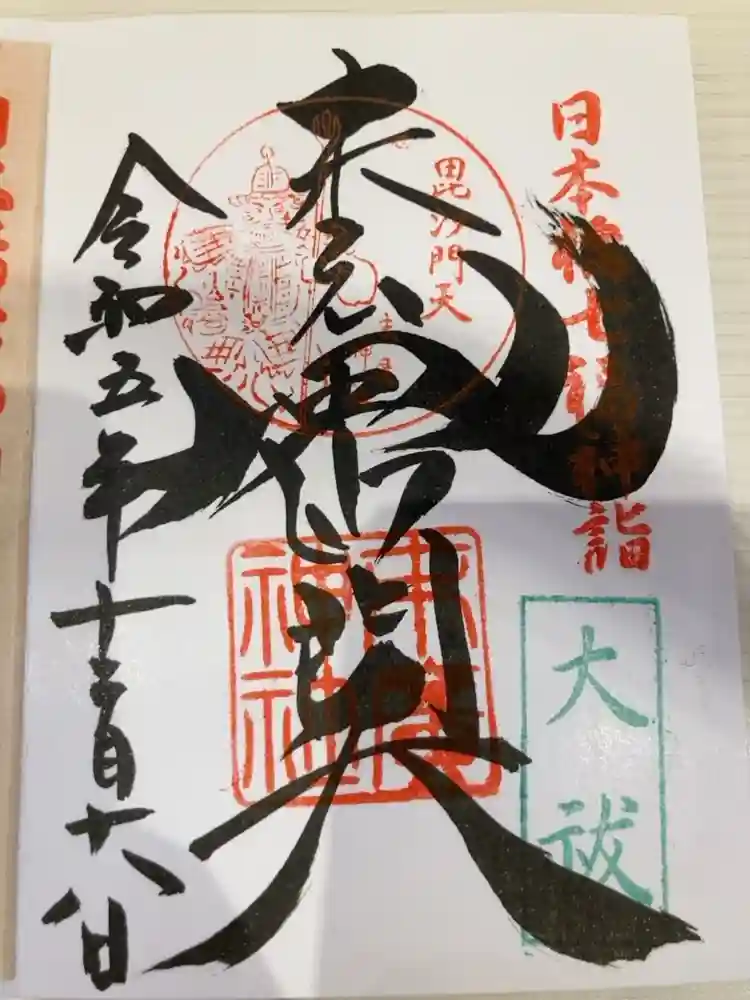 日本橋七福神詣
毘沙門天
毘沙門天
末廣
神社
大祓
令和五年十二月十六日